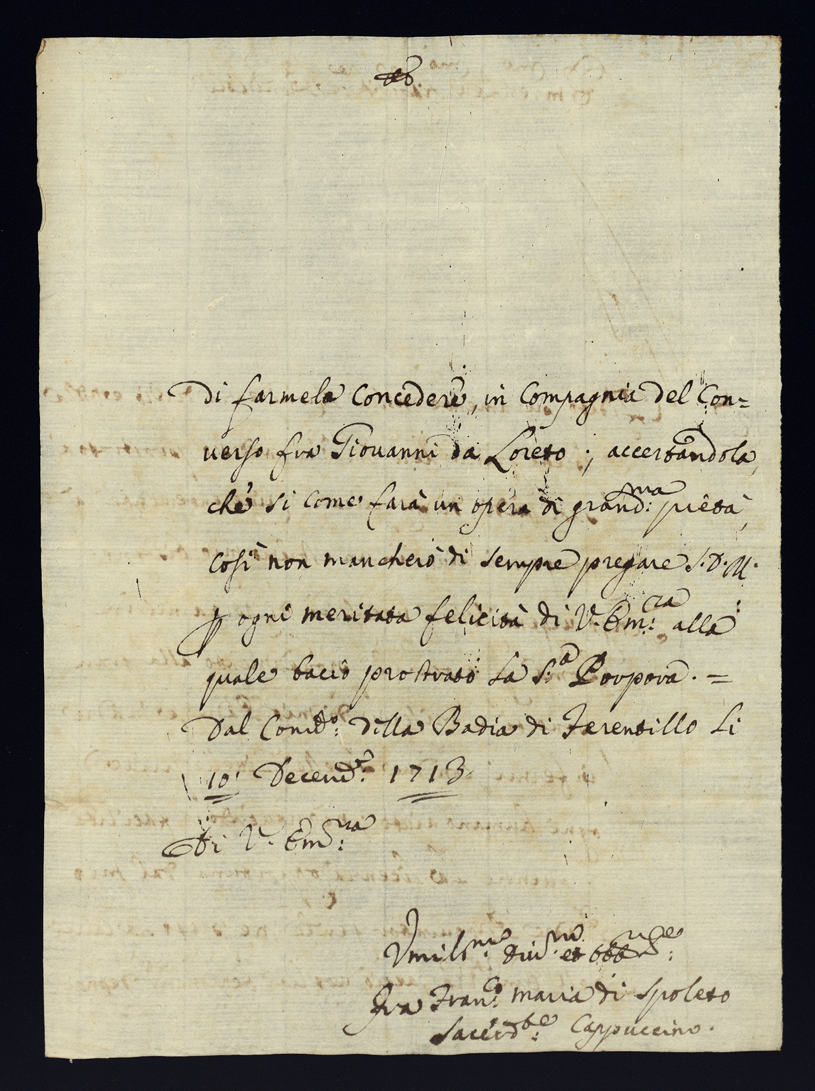 Di farmela Concedere, in Compagnia del Con=
verso fra Giovanni da Loreto; accertandola,
che si come farà un opera di grand.ma pietà,
così non mancherò di sempre pregare S.D.M.
ꝑ ogni meritata felicità di V. Em.za alla
quale bacio prostrato la S.a Porpora. =
Dal Conv.o della Badia di Ferentillo li
10 Decemb.e 1713
Di V. Em.za
Umilis.mo Div.mo et
Fra Fran.co Maria di Spoleto
Sacerd.te Cappuccino.